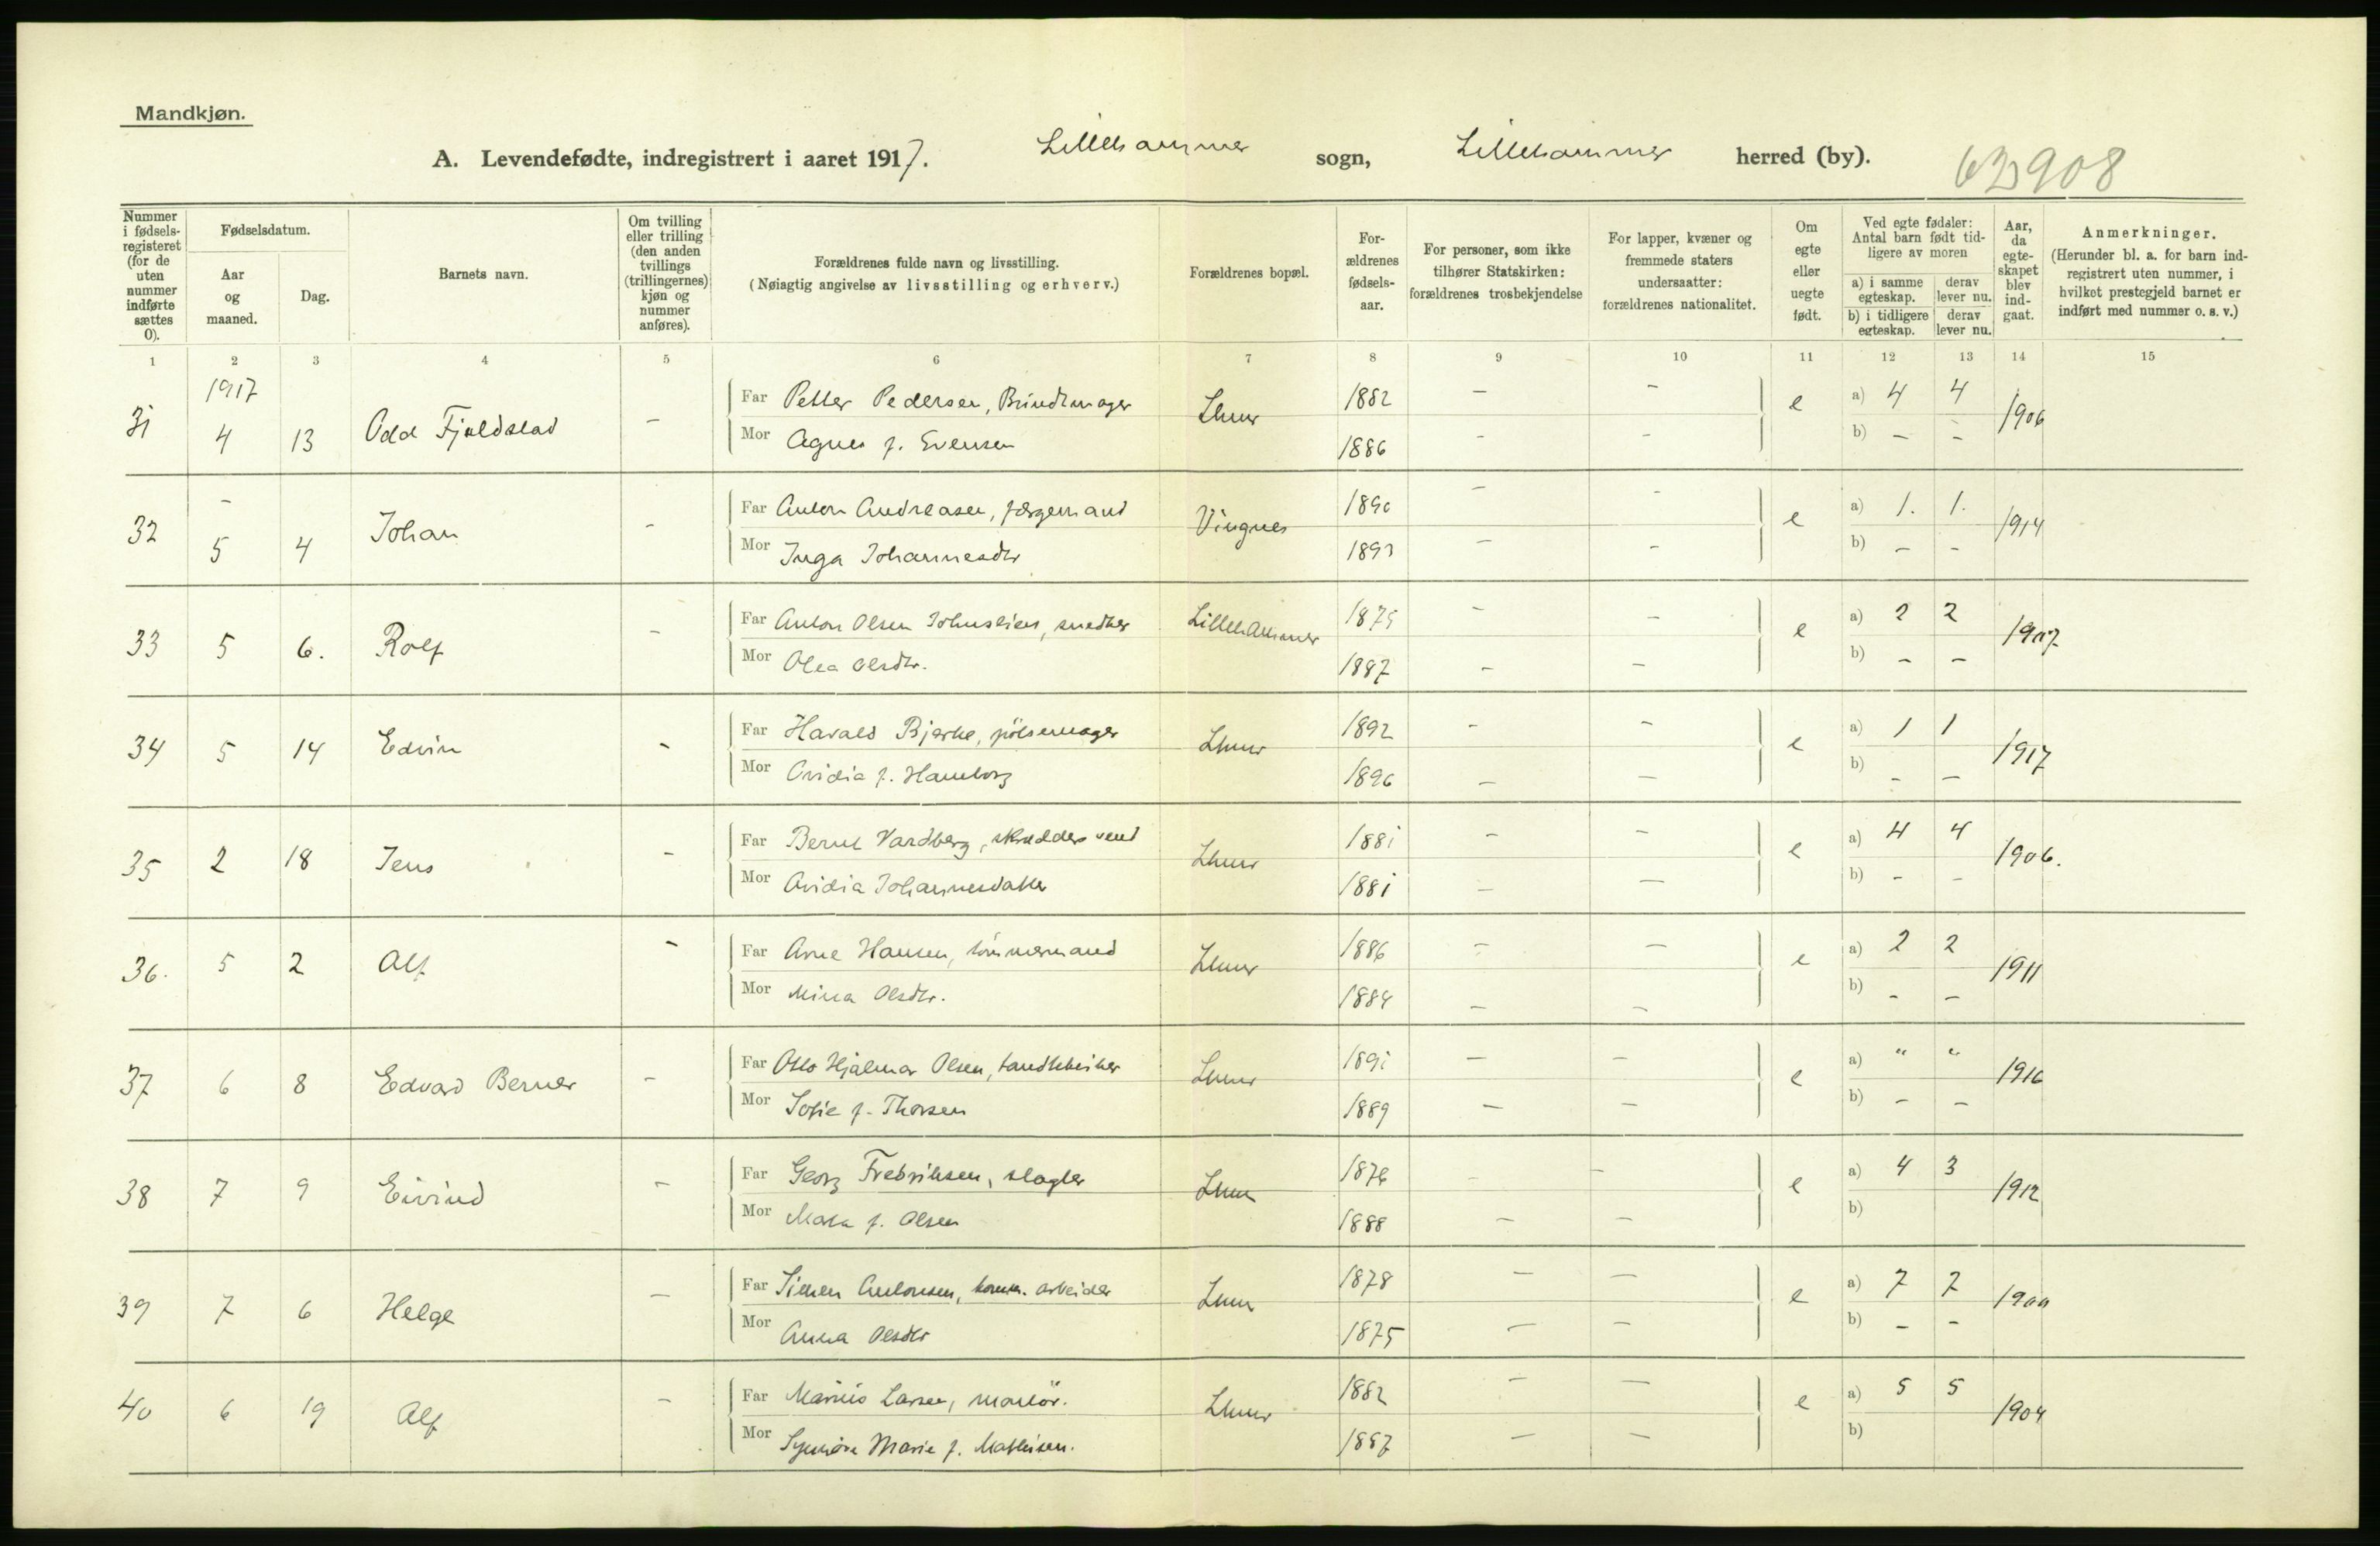 Mandkjøn.
A. Levendefødte, indregistrert i aaret 1917. Lillehammer sogn, Lillehammer herred (by).
Nummer i fødsels-registeret (for de uten nummer indførte sættes 0).
Fødselsdatum.
Aar og maaned.
Dag.
Barnets navn.
Om tvilling eller trilling (den anden tvillings (trillingernes) kjøn og nummer anføres).
Forældrenes fulde navn og livsstilling.
(Nøiagtig angivelse av livsstilling og erhverv.)
Forældrenes bopæl.
For-ældrenes fødsels-aar.
For personer, som ikke tilhører Statskirken: forældrenes trosbekjendelse
For lapper, kvæner og fremmede staters undersaatter: forældrenes nationalitet.
Om egte eller uegte født.
Ved egte fødsler: Antal barn født tid-ligere av moren
a) i samme egteskap. derav lever nu.
b) i tidligere egteskap. derav lever nu.
Aar, da egte-skapet blev ind-gaat.
Anmerkninger.
(Herunder bl. a. for barn ind-registrert uten nummer, i hvilket prestegjeld barnet er indført med nummer o. s. v.)
1 2 3 4 5 6 7 8 9 10 11 12 13 14 15
1917
31 4 13 Odd Fjeldstad - Far Petter Pedersen, Lhmr 1882 - - e a) 4 4 1906
Mor Agnes f. Evensen 1886 - - b) - -
-
32 5 4 Johan - Far Anton Andreasen, færgemand Vingnes 1890 - - e a) 1. 1. 1914
Mor Inga Johannesdtr 1893 - - b) - -
33 5 6. Rolf - Far Anton Olsen, snedker Lillehammer 1875 - - e a) 2 2 1907
Mor Olea Olsdtr. 1887 - - b) - -
34 5 14 Edvin - Far Harald Bjerke, pölsemager Lhmr 1892 - - e a) 1 1 1917
Mor Ovidia f. Hamborg 1896 - - b) - -
35 2 18 Jens - Far Bernt Vardberg, skrædders vend Lhmr 1881 - - e a) 4 4 1906.
Mor Ovidia Johannesdatter 1881 - - b) - -
36. 5 2 Alf - Far Arne Hansen, tömmermand Lhmr 1886 - - e a) 2 2 1911
Mor Mina Olsdtr. 1884 - - b) - -
37 6 8 Edvard Berner - Far Otto Hjalmar Olsen, Lhmr 1891 - - e a) " " 1916
Mor Sofie f. Thorsen 1889 - - b) - -
38 7 9 Eivind - Far Georg Fredriksen, slagter Lhmr 1876 - - e a) 4 3 1912
Mor f. Olsen 1888 - - b)
39 7 6 Helge - Far Simen Antonsen, arbeider Lhmr 1878 - - e a) 7 7 1900
Mor Anna Olsdtr 1875 - - b) - -
40 6 19 Alf - Far Marius Larsen, Lhmr 1882 - - e a) 5 5 1904
Mor Synnöve Marie f. Mathisen. 1887 - - b)